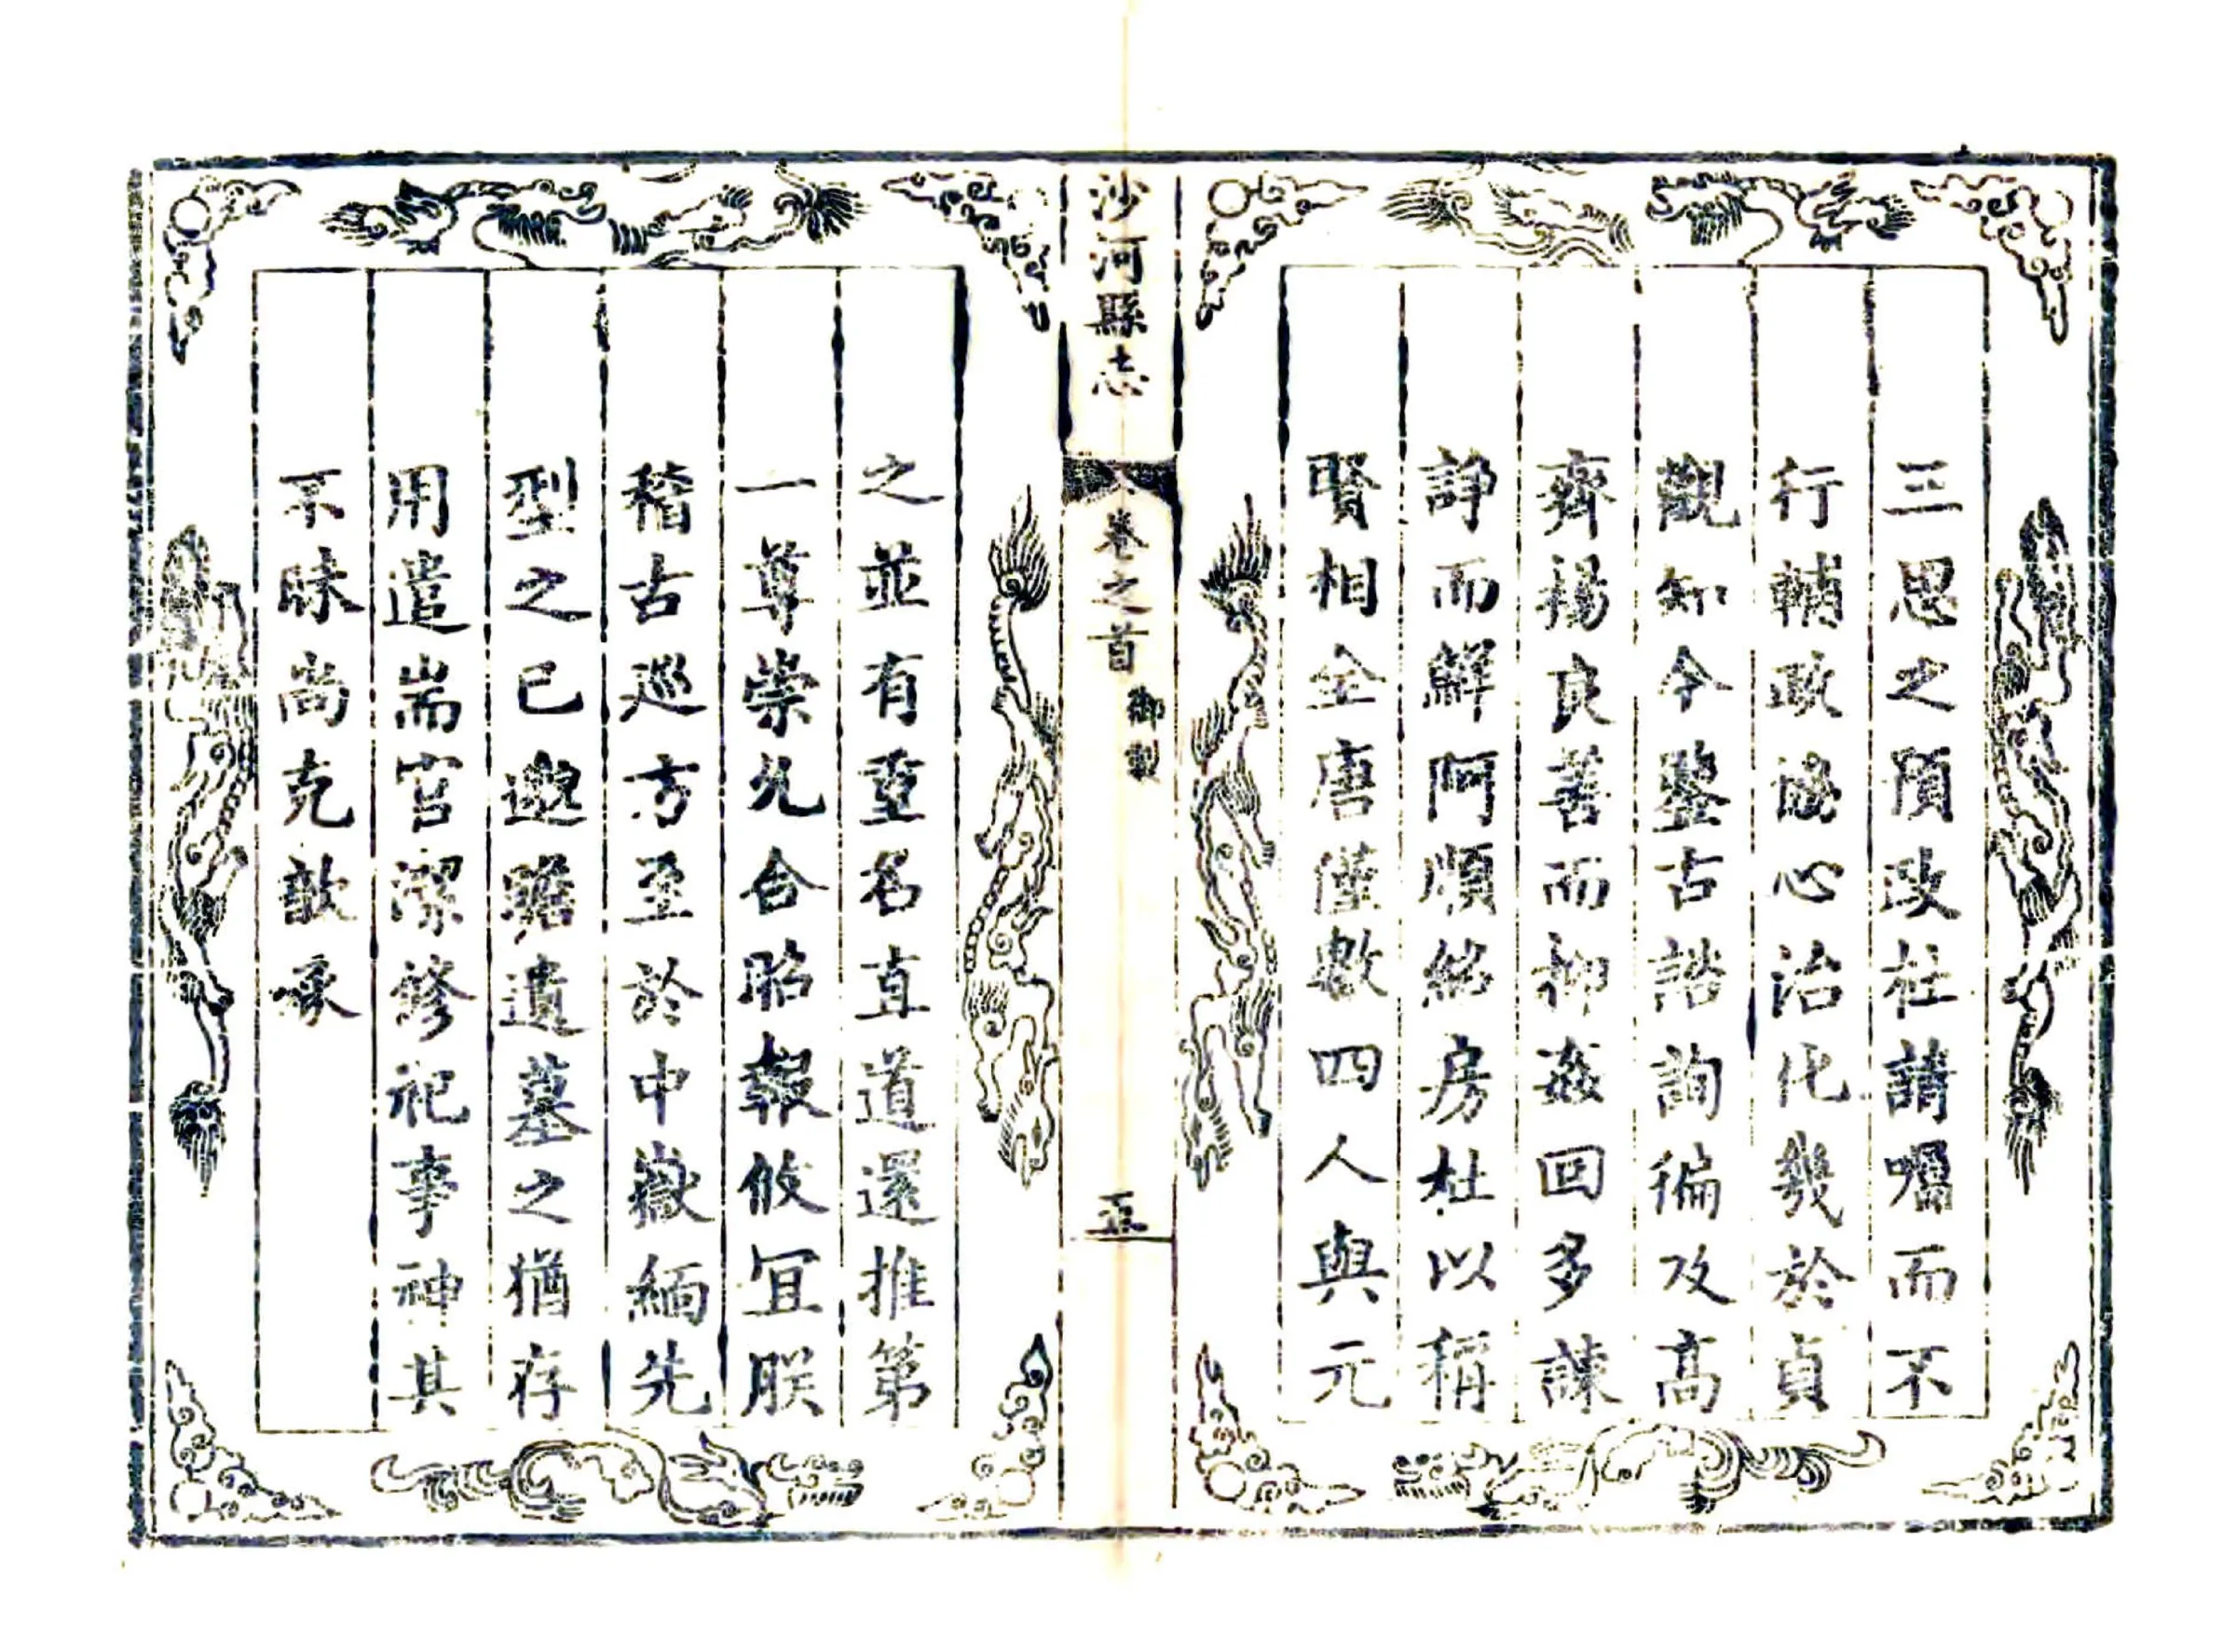 三思之預政杜請囑而不
行輔政協心治化幾於貞
觀知今鑒古諮詢徧及高
齊揚良善而抑姦回多諫
諍而鮮阿順房杜以稱
賢相全唐僅數四人與元
沙河縣志
卷之首
御製
五
之並有重名直道還推第
一尊崇允合昭報攸宜朕
稽古巡方至於中嶽緬先
型之已邈瞻遺墓之猶存
用遣耑官潔修祀事神其
不昧尚克歆承